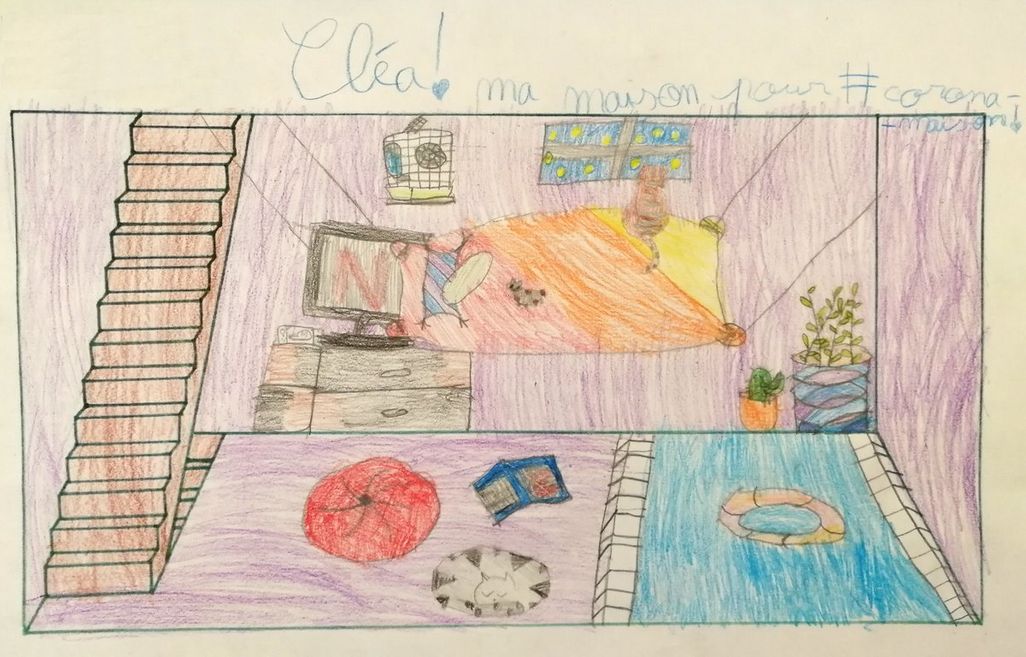 Cléa! ma maison pour #corona-
-maison!
N